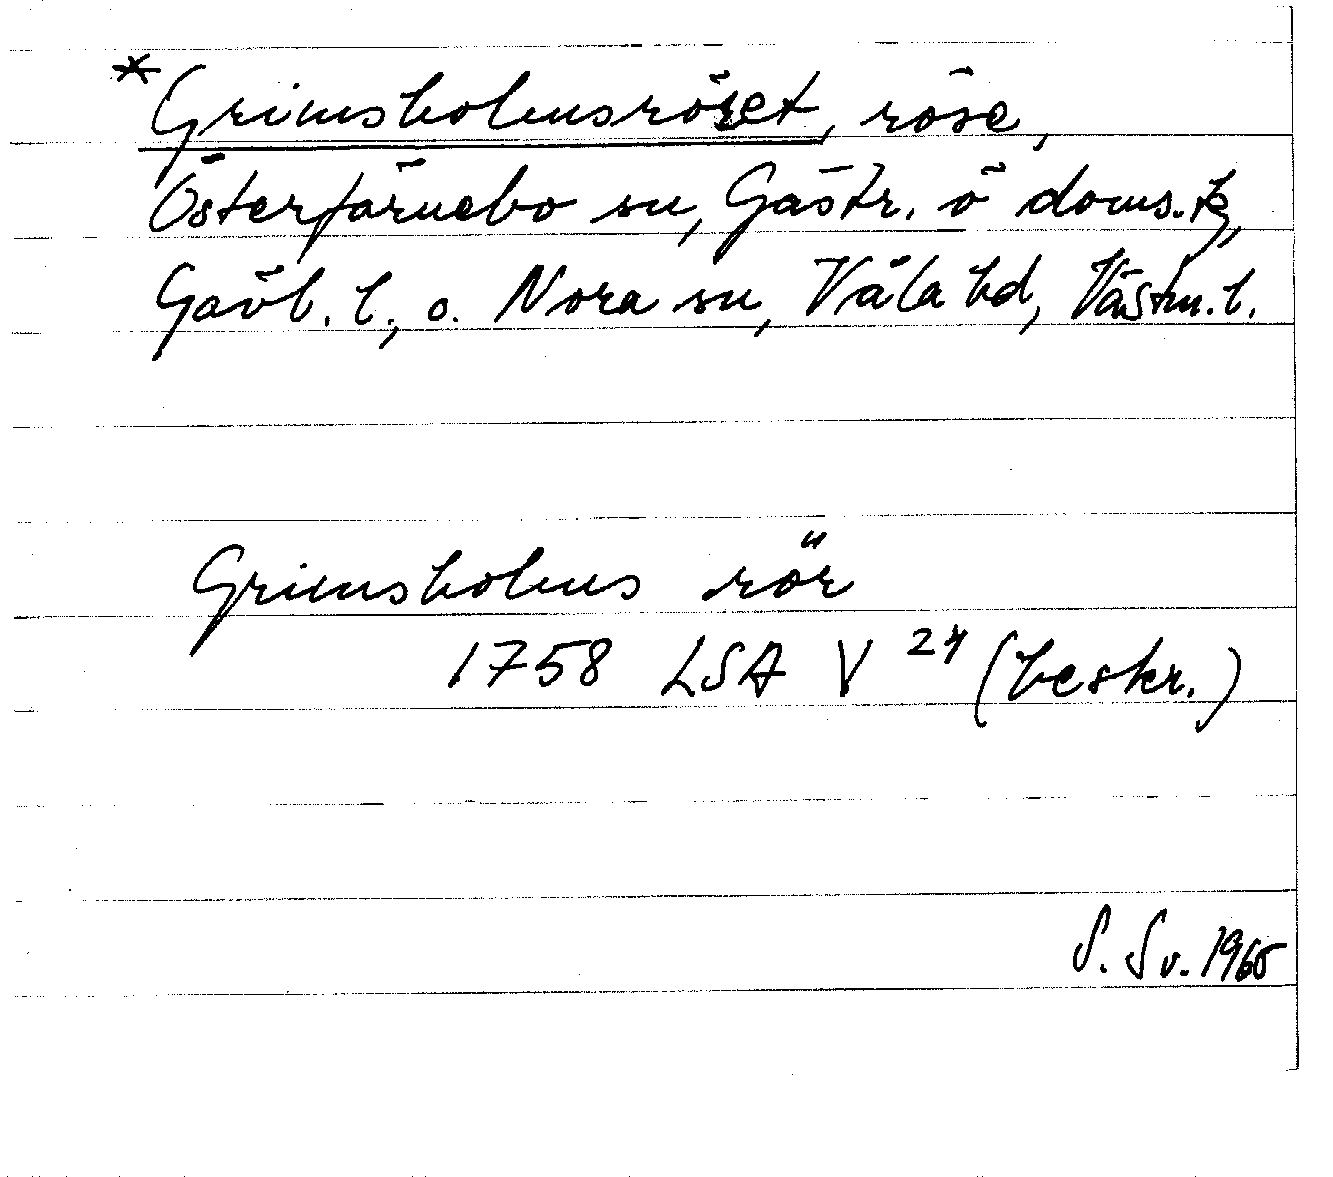 *Grimsholmsröset, röse,
Österfärnebo sn, Gästr. ö doms.
Gävl. l., o. Nora sn, Våla hd, Västm. l.
Grimsholms rör
1758 LSA V 24 (beskr.)
S. Sv. 1965